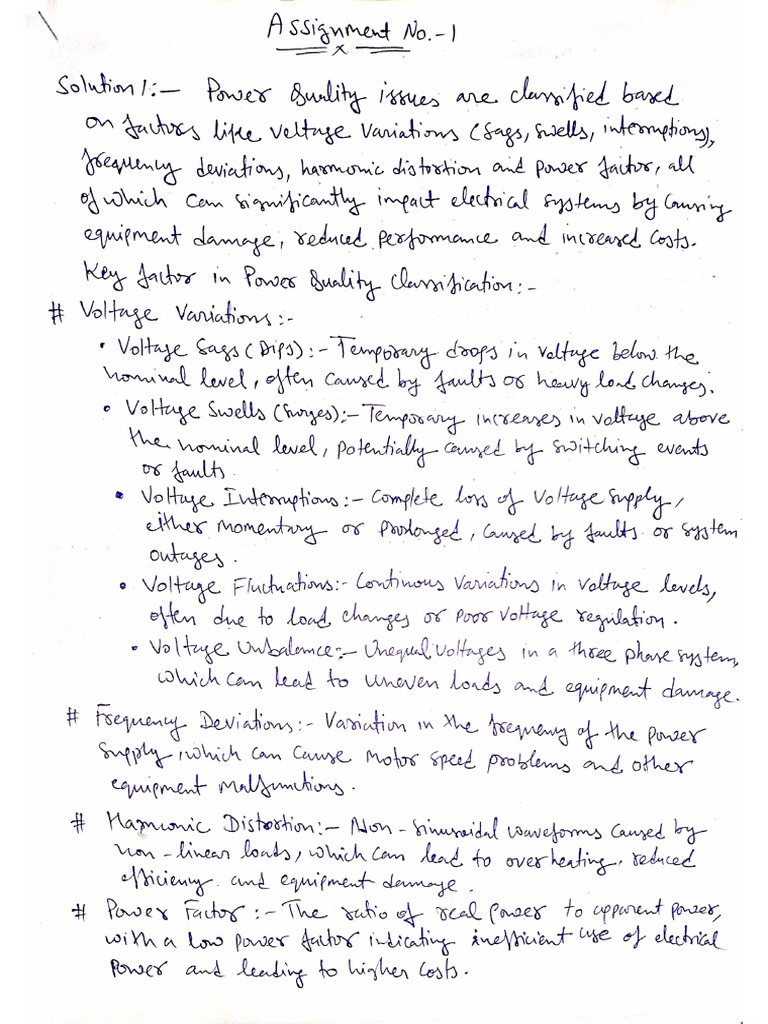 Assignment No.-1
x
Solution 1:- Power Quality issues are classified based
on factors like voltage variations (sags, swells, interruptions),
frequency deviations, harmonic distortion and power factor, all
of which can significantly impact electrical systems by causing
equipment damage, reduced performance and increased costs.
Key factor in Power Quality Classification:-
# Voltage Variations:-
• Voltage Sags (Dips):- Temporary drops in voltage below the
nominal level, often caused by faults or heavy load changes.
• Voltage Swells (Surges):- Temporary increases in voltage above
the nominal level, potentially caused by switching events
or faults.
• Voltage Interruptions:- Complete loss of voltage supply,
either momentary or prolonged, caused by faults or system
outages.
• Voltage Fluctuations:- Continous variations in voltage levels,
often due to load changes or poor voltage regulation.
• Voltage Unbalance:- Unequal voltages in a three phase system,
which can lead to uneven loads and equipment damage.
# Frequency Deviations:- Variation in the frequency of the power
supply, which can cause motor speed problems and other
equipment malfunctions.
# Harmonic Distortion:- Non-sinusoidal waveforms caused by
non-linear loads, which can lead to overheating, reduced
efficiency and equipment damage.
# Power Factor:- The ratio of real power to apparent power,
with a low power factor indicating inefficient use of electrical
power and leading to higher costs.